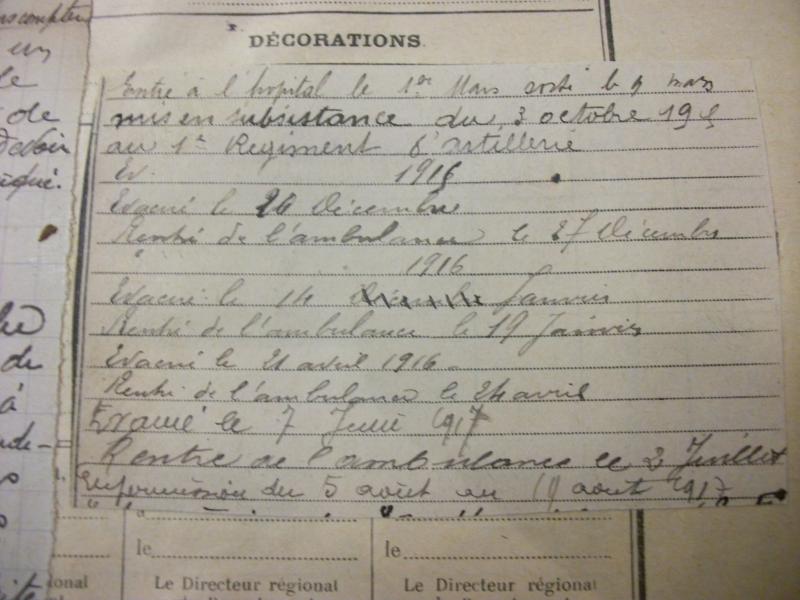 en
le
de
DÉCORATIONS.
Entré à l'hopital le 1er Mars sorti le 9 mars
mis en subsistance du 3 octobre
au 1er Regiment d'artillerie
Ev. 1916
Evacué le 24 Décembre
Rentré de l'ambulance le 27 Décembre
" 1916
Evacué le 14 Janvier
Rentré de l'ambulance le 19 Janvier
Evacué le 21 avril 1916
Rentré de l'ambulance le 24 avril
Evacué le 7 Juin 1917
Rentré de l'ambulance le 2 Juillet
en permission du 5 août au 11 août 1917
de
à
le le
Le Directeur régional Le Directeur régional